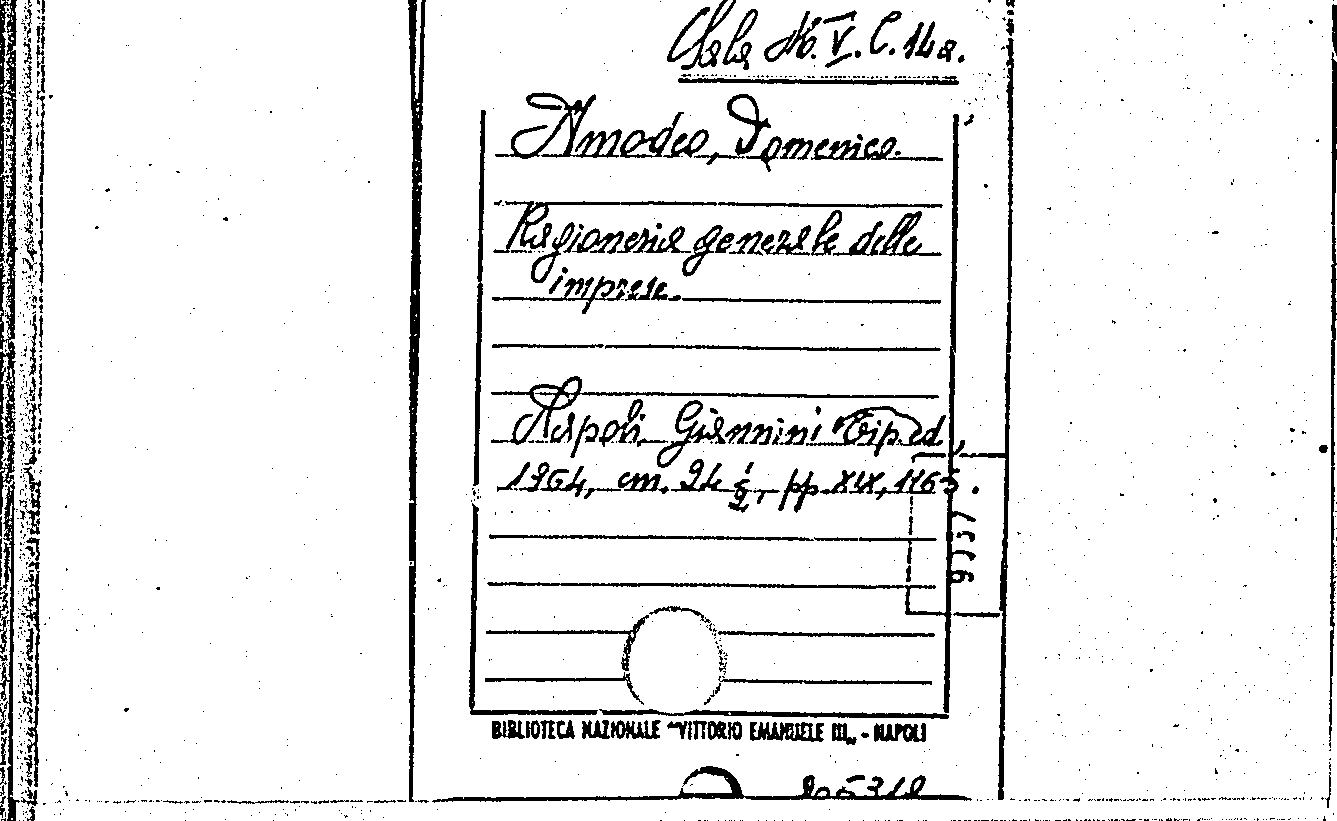 Sala N. V. C. 14a.
Amodeo, Domenico.
Ragioneria generale delle
imprese.
Napoli, Giannini Tip. ed,
1964, cm. 24 ½, pp. XIX, 1165.
BIBLIOTECA NAZIONALE "VITTORIO EMANUELE III„ - NAPOLI